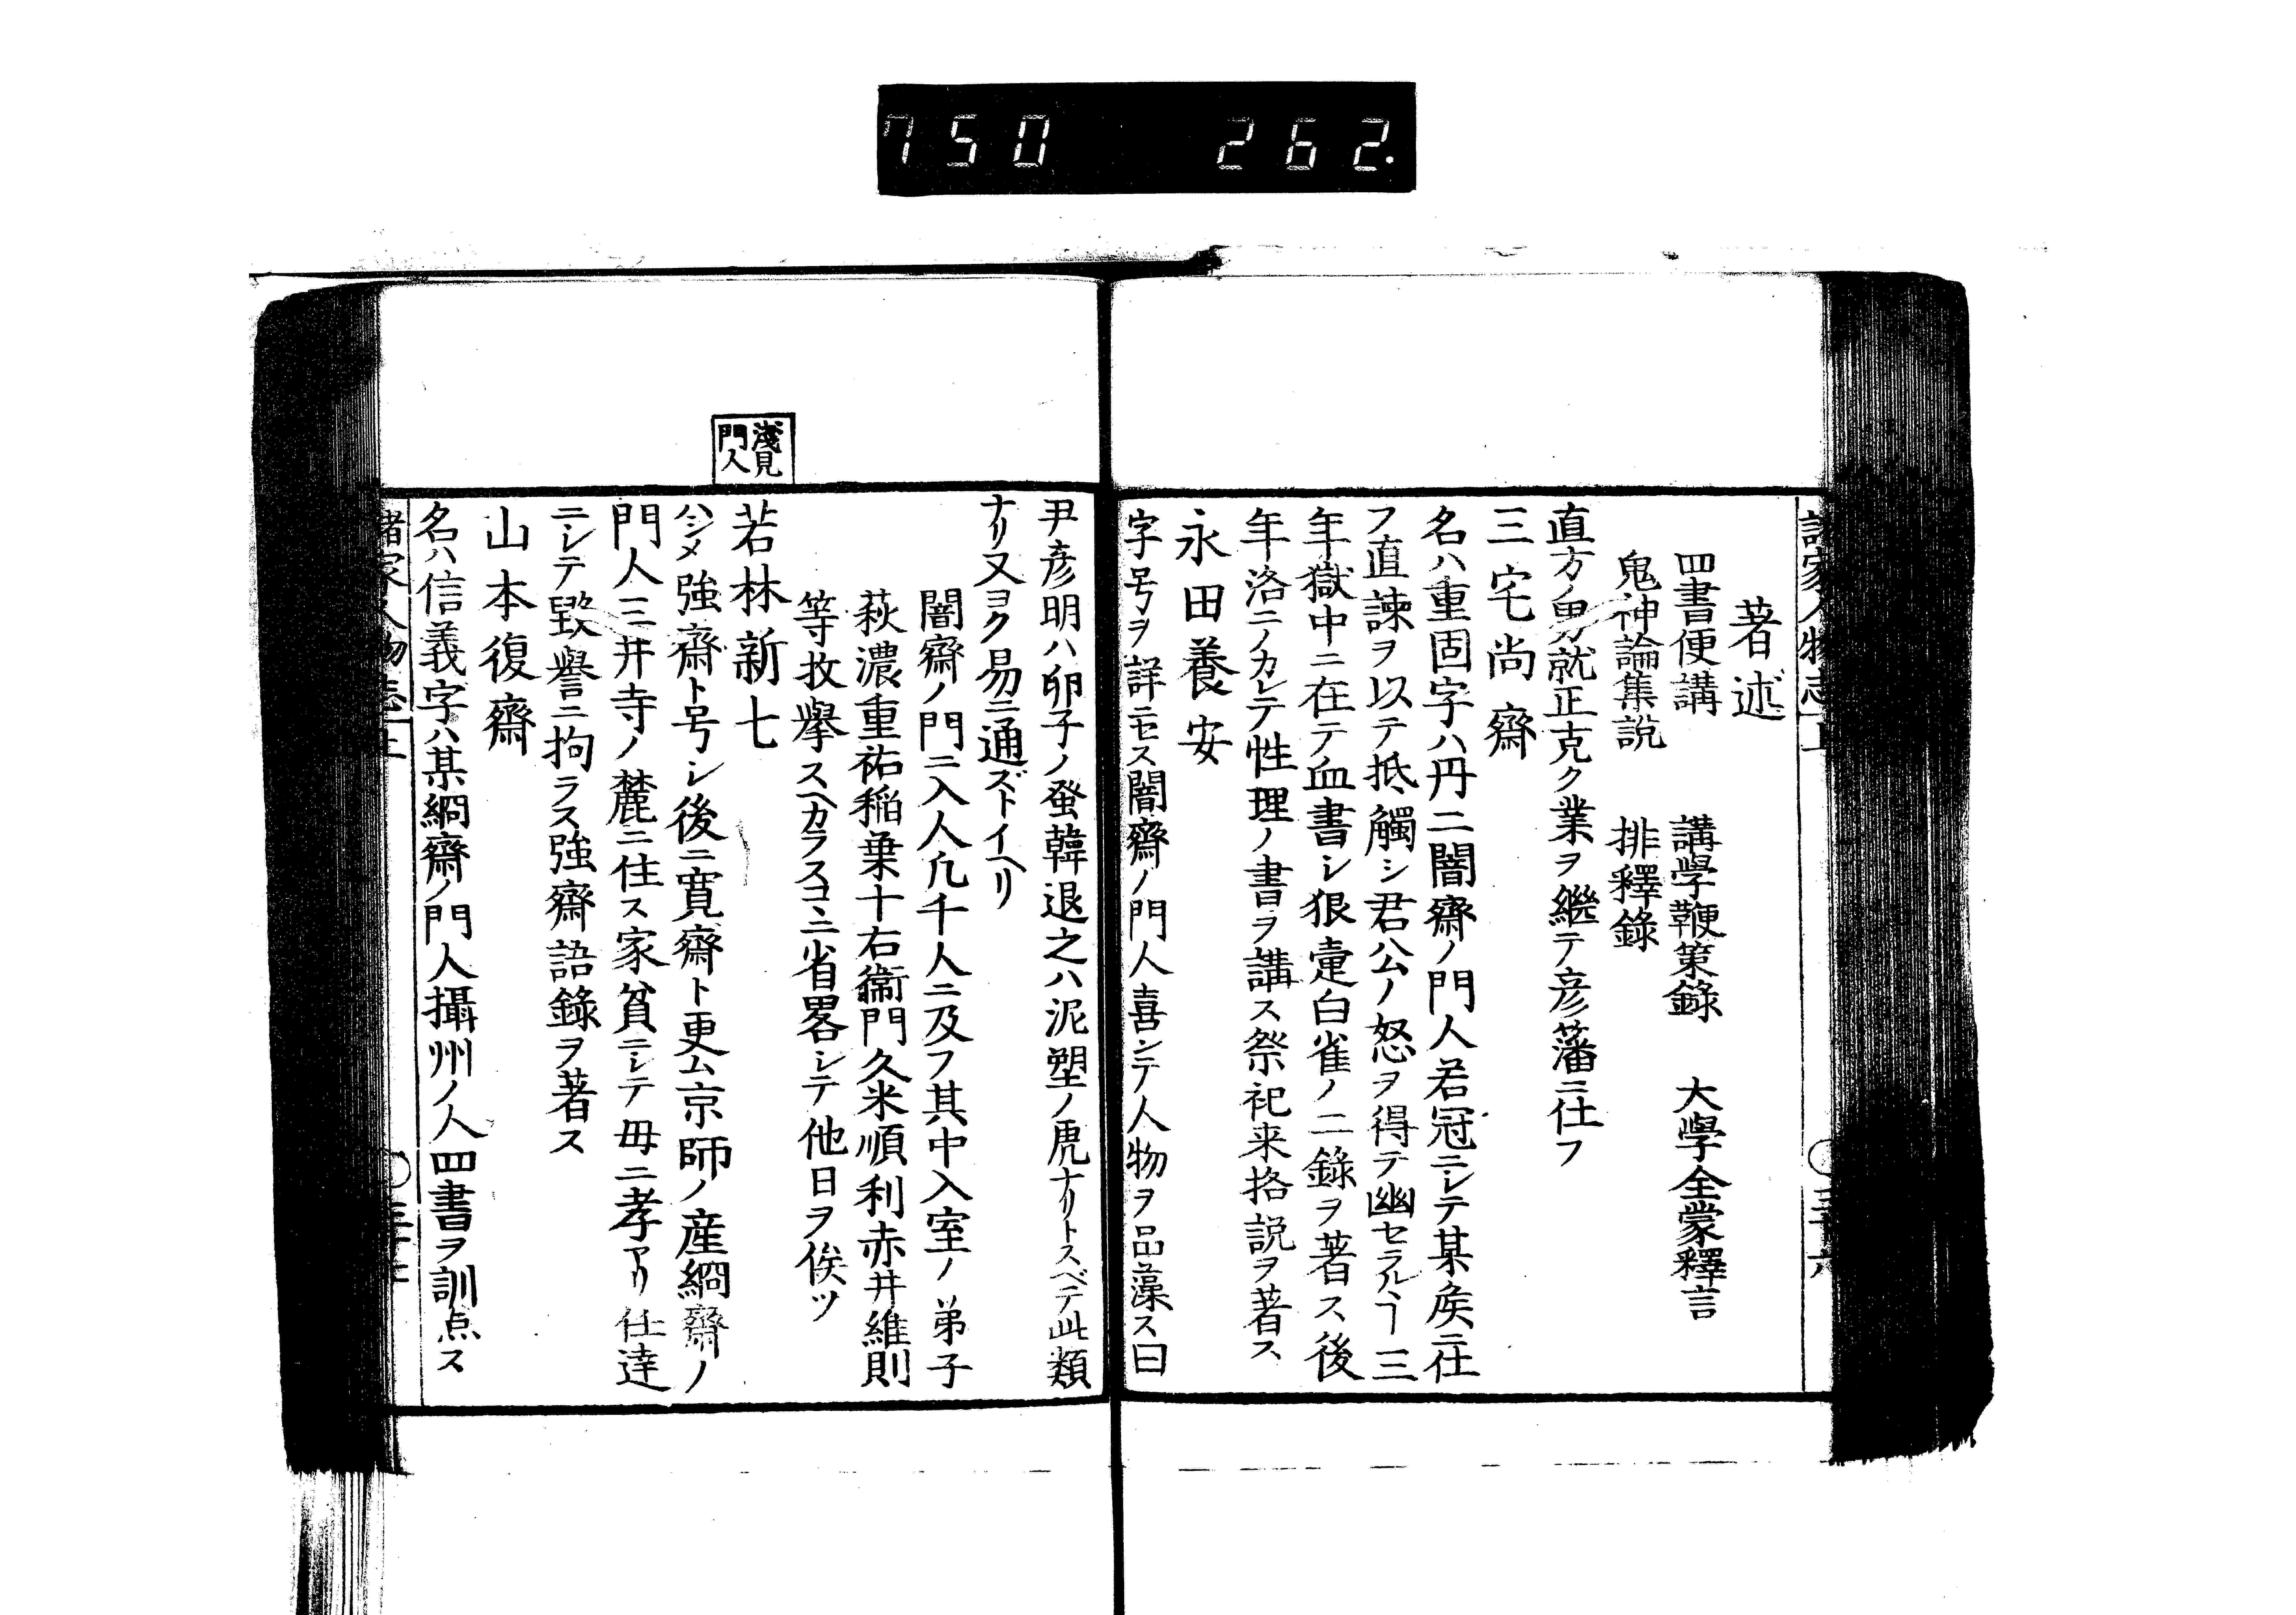 750 262.
諸家人物志上
著述
四書便講 講學鞭策錄 大學全蒙釋言
鬼神論集說 排釋錄
直方ノ男就正克ク業ヲ繼テ彦藩ニ仕フ
三宅尚齋
名ハ重固字ハ丹二闇齋ノ門人若冠ニシテ某矦ニ仕
フ直諫ヲ以テ抵觸シ君公ノ怒ヲ得テ幽セラルヽヿ三
年獄中ニ在テ血書シ狼疐白雀ノ二錄ヲ著ス後
年洛ニノカレテ性理ノ書ヲ講ス祭祀来格說ヲ著ス
永田養安
字号ヲ詳ニセス闇齋ノ門人喜ンテ人物ヲ品藻ス曰
尹彦明ハ卵子ノ蛩韓退之ハ泥塑ノ虎ナリトスベテ此類
ナリ又ヨク易ニ通ズトイヘリ
闇齋ノ門ニ入人凡千人ニ及フ其中入室ノ弟子
萩濃重祐稲葉十右衞門久米順利赤井維則
等枚擧スヘカラスコヽニ省畧シテ他日ヲ俟ツ
淺見
門人
若林新七
ハシメ強齋ト号シ後ニ寛齋ト更ム京師ノ産絅齋ノ
門人三井寺ノ麓ニ住ス家貧ニシテ毋ニ孝アリ仕達
ニシテ毀譽ニ拘ラス強齋語錄ヲ著ス
山本復齋
名ハ信義字ハ某絅齋ノ門人攝州ノ人四書ヲ訓点ス
諸家人物志上